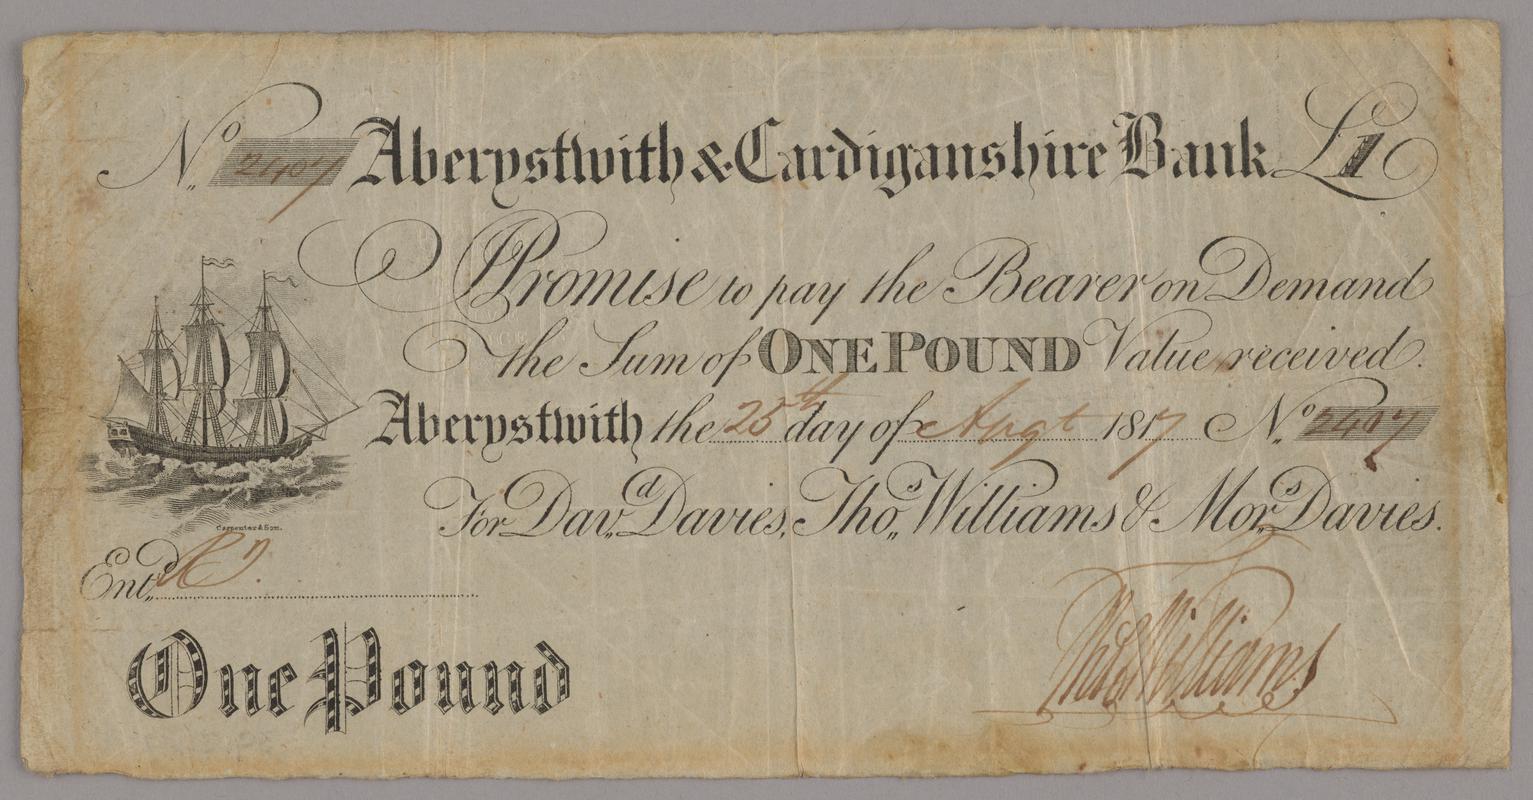 No. 2407 Aberystwith & Cardiganshire Bank £1
I Promise to pay the Bearer on Demand
the Sum of ONE POUND Value received.
Aberystwith the 25th day of Augt 1817 No. 2407
For Davd. Davies, Thos. Williams & Mors. Davies.
Carpenter & Son.
Entd.
One Pound
Thos Williams